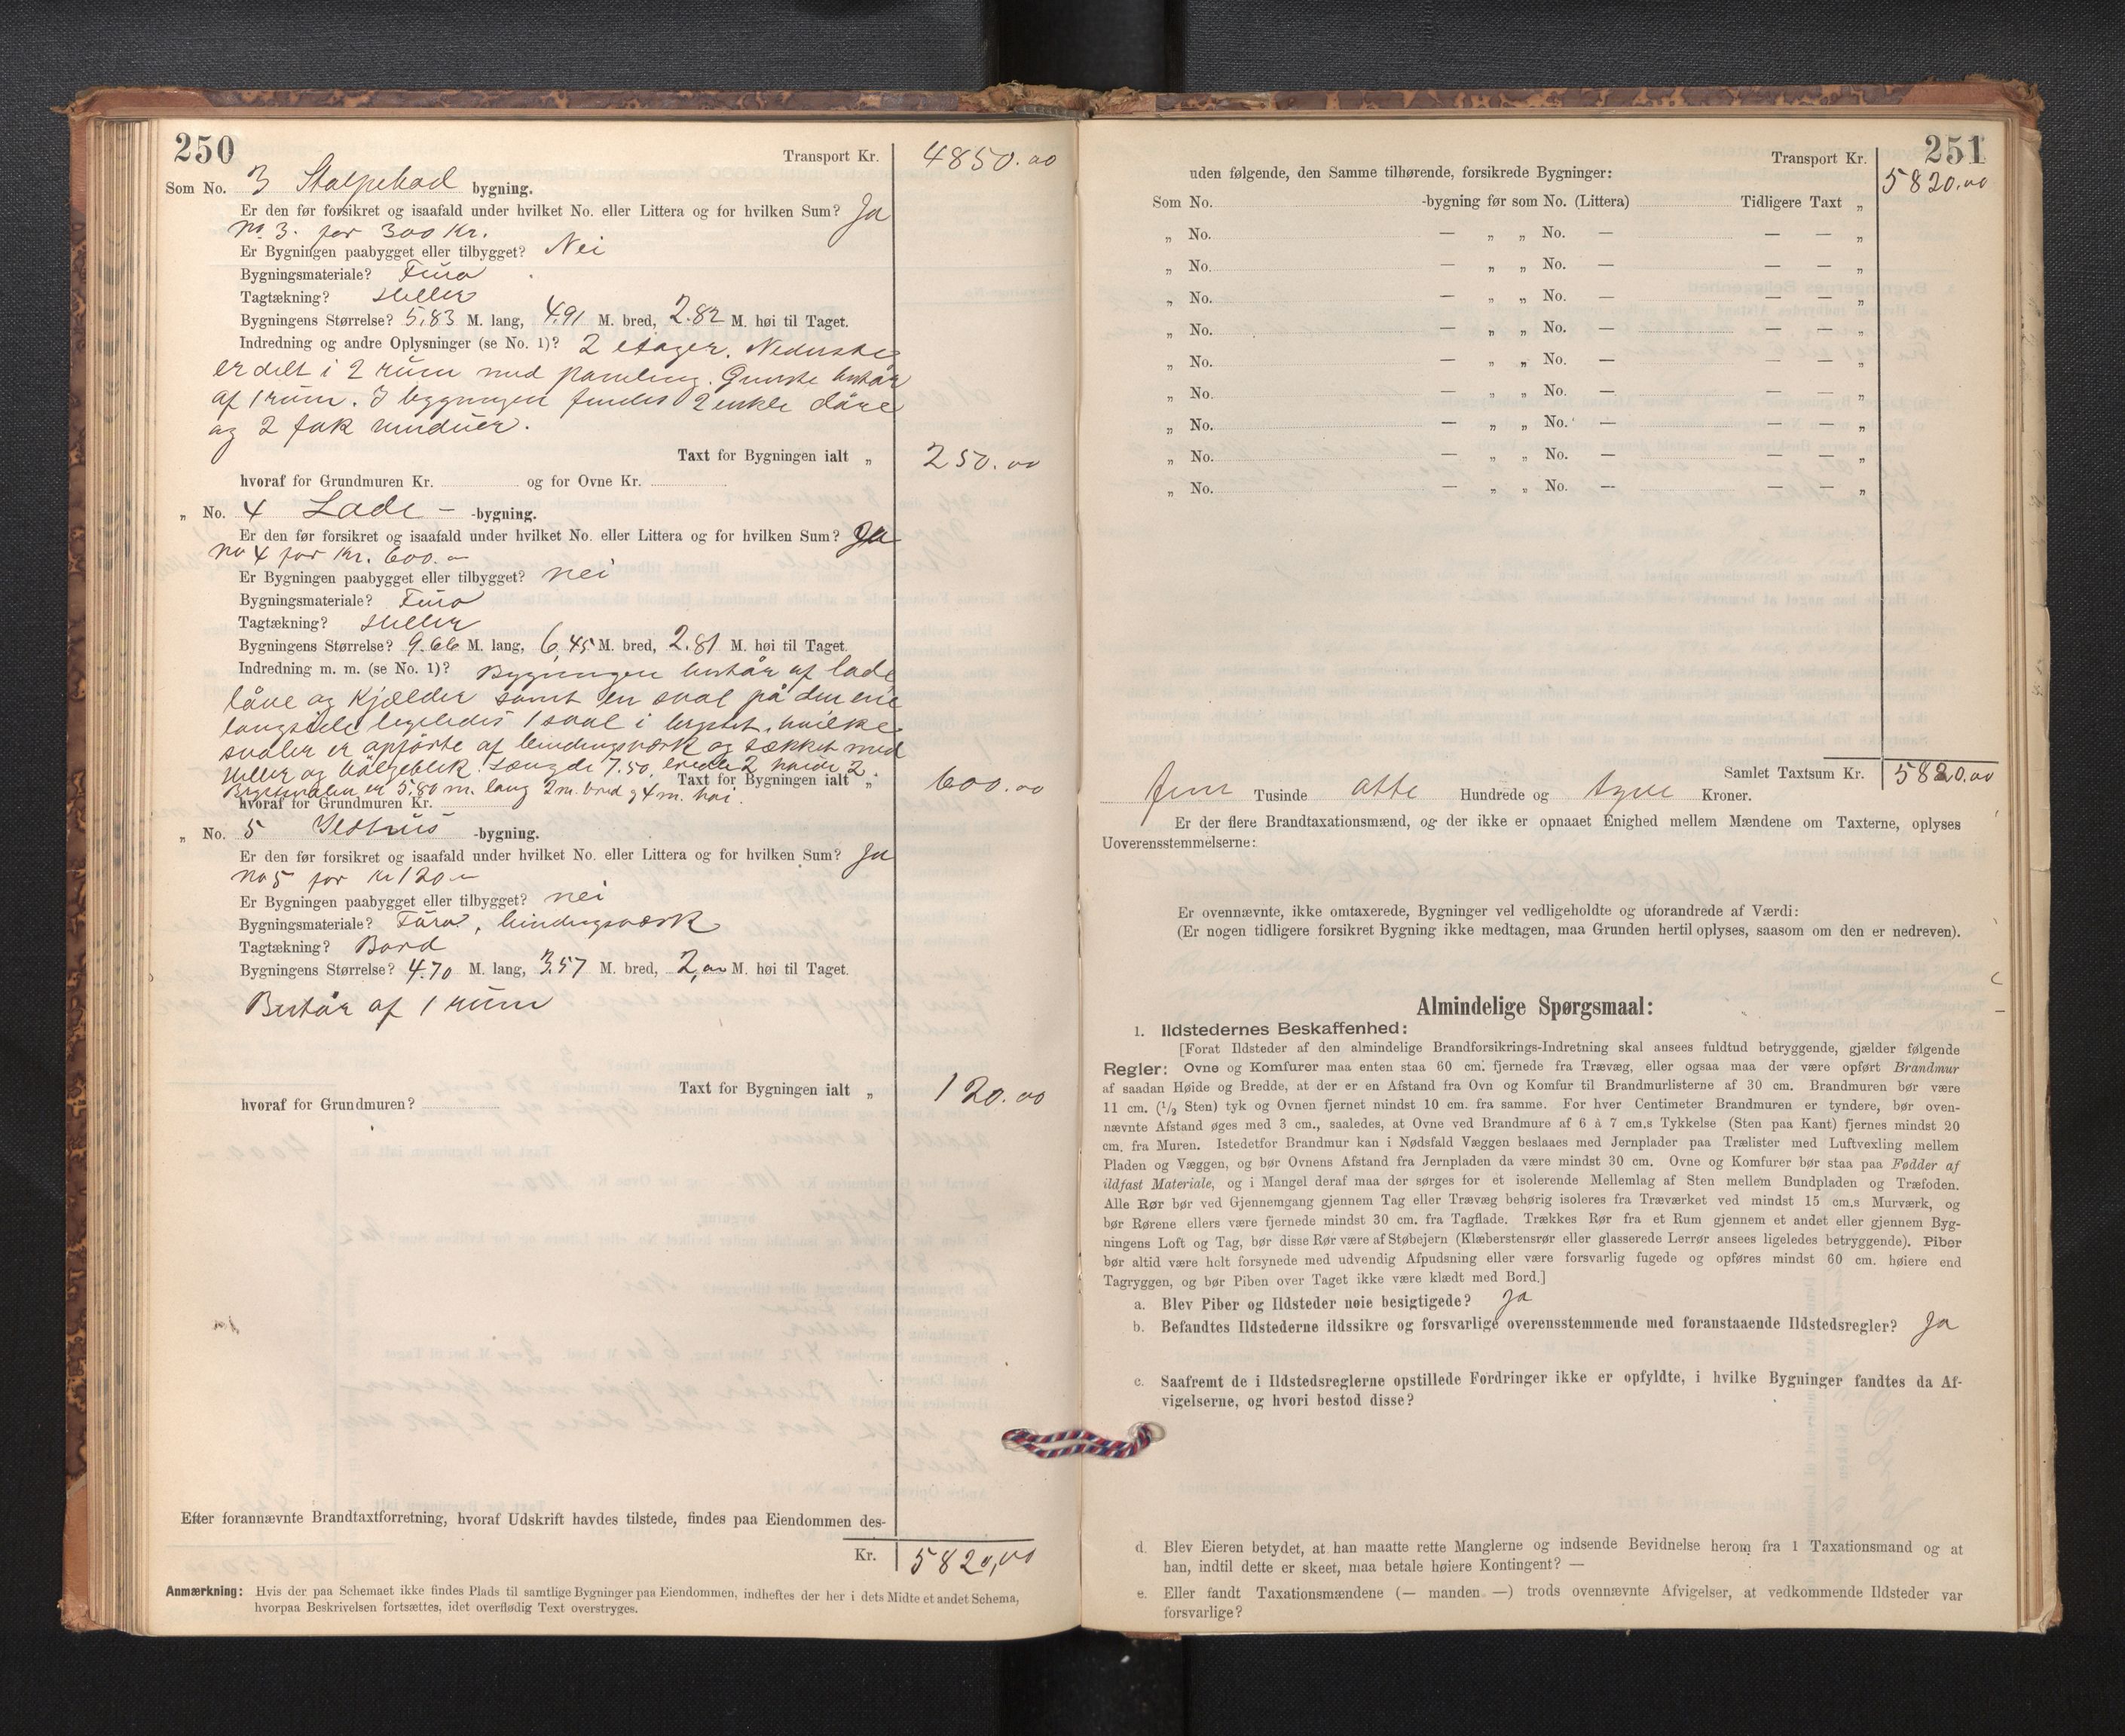 250
Transport Kr. 4850.00
Som No. 3 Stolpebod bygning.
Er den før forsikret og isaafald under hvilket No. eller Littera og for hvilken Sum? Ja
No 3. for 300 Kr.
Er Bygningen paabygget eller tilbygget? Nei
Bygningsmateriale? Furu
Tagtækning? Heller
Bygningens Størrelse? 5,83 M. lang, 4.91 M. bred, 2.82 M. høi til Taget.
Indredning og andre Oplysninger (se No. 1)? 2 etager. Nederste
er delt i 2 rum med paneling. Øverste består
af 1 rum. I bygningen findes 2 enkle døre
og 2 fak vinduer.
Taxt for Bygningen ialt „ 250.00
hvoraf for Grundmuren Kr. og for Ovne Kr.
„ No. 4 Lade - -bygning.
Er den før forsikret og isaafald under hvilket No. eller Littera og for hvilken Sum? Ja
No 4 for Kr. 600.-
Er Bygningen paabygget eller tilbygget? nei
Bygningsmateriale? Furu
Tagtækning? Heller
Bygningens Størrelse? 9.66 M. lang, 6,45 M. bred, 2.81 M. høi til Taget.
Indredning m. m. (se No. 1)? Bygningen består af lade
låve og kjælder samt en sval på den ene
langside ligeledes 1 sval i brystet, hvilke
svaler er opførte af bindingsværk og tækket med
Heller og bølgeblik. Længde 7.50, bredde 2 høide 2.
Brystsvalen er 5,80 m. lang 2 m. bred og 4 m. høi.
Taxt for Bygningen ialt „ 600.00
hvoraf for Grundmuren Kr.
„ No. 5 Ildhus -bygning.
Er den før forsikret og isaafald under hvilket No. eller Littera og for hvilken Sum? Ja
No 5 for Kr 120 -
Er Bygningen paabygget eller tilbygget? nei
Bygningsmateriale? Furu, bindingsværk
Tagtækning? Bord
Bygningens Størrelse? 4.70 M. lang, 3.57 M. bred, 2,00 M. høi til Taget.
Består af 1 rum
Taxt for Bygningen ialt „ 120.00
hvoraf for Grundmuren?
Efter forannævnte Brandtaxtforretning, hvoraf Udskrift havdes tilstede, findes paa Eiendommen des-
Kr. 5820,00
Anmærkning: Hvis der paa Schemaet ikke findes Plads til samtlige Bygninger paa Eiendommen, indheftes der her i dets Midte et andet Schema,
hvorpaa Beskrivelsen fortsættes, idet overflødig Text overstryges.
251
Transport Kr. 5820.00
uden følgende, den Samme tilhørende, forsikrede Bygninger:
Som No. -bygning før som No. (Littera) Tidligere Taxt „
„ No. — „ „ No. — — — „
„ No. — „ „ No. — — — „
„ No. — „ „ No. — — — „
„ No. — „ „ No. — — — „
„ No. — „ „ No. — — — „
„ No. — „ „ No. — — — „
„ No. — „ „ No. — — — „
„ No. — „ „ No. — — — „
„ No. — „ „ No. — — — „
Samlet Taxtsum Kr. 5820.00
fem Tusinde otte Hundrede og tyve Kroner.
Er der flere Brandtaxationsmænd, og der ikke er opnaaet Enighed mellem Mændene om Taxterne, oplyses
Uoverensstemmelserne:
Er ovennævnte, ikke omtaxerede, Bygninger vel vedligeholdte og uforandrede af Værdi:
(Er nogen tidligere forsikret Bygning ikke medtagen, maa Grunden hertil oplyses, saasom om den er nedreven).
Almindelige Spørgsmaal:
1. Ildstedernes Beskaffenhed:
[Forat Ildsteder af den almindelige Brandforsikrings-Indretning skal ansees fuldtud betryggende, gjælder følgende
Regler: Ovne og Komfurer maa enten staa 60 cm. fjernede fra Trævæg, eller ogsaa maa der være opført Brandmur
af saadan Høide og Bredde, at der er en Afstand fra Ovn og Komfur til Brandmurlisterne af 30 cm. Brandmuren bør være
11 cm. (1/2 Sten) tyk og Ovnen fjernet mindst 10 cm. fra samme. For hver Centimeter Brandmuren er tyndere, bør oven-
nævnte Afstand øges med 3 cm., saaledes, at Ovne ved Brandmure af 6 à 7 cm.s Tykkelse (Sten paa Kant) fjernes mindst 20
cm. fra Muren. Istedetfor Brandmur kan i Nødsfald Væggen beslaaes med Jernplader paa Trælister med Luftvexling mellem
Pladen og Væggen, og bør Ovnens Afstand fra Jernpladen da være mindst 30 cm. Ovne og Komfurer bør staa paa Fødder af
ildfast Materiale, og i Mangel deraf maa der sørges for et isolerende Mellemlag af Sten mellem Bundpladen og Træfoden.
Alle Rør bør ved Gjennemgang gjennem Tag eller Trævæg behørig isoleres fra Træværket ved mindst 15 cm.s Murværk, og
bør Rørene ellers være fjernede mindst 30 cm. fra Tagflade. Trækkes Rør fra et Rum gjennem et andet eller gjennem Byg-
ningens Loft og Tag, bør disse Rør være af Støbejern (Klæberstensrør eller glasserede Lerrør ansees ligeledes betryggende). Piber
bør altid være helt forsynede med udvendig Afpudsning eller være forsvarlig fugede og opføres mindst 60 cm. høiere end
Tagryggen, og bør Piben over Taget ikke være klædt med Bord.]
a. Blev Piber og Ildsteder nøie besigtigede? ja
b. Befandtes Ildstederne ildssikre og forsvarlige overensstemmende med foranstaaende Ildstedsregler? Ja
c. Saafremt de i Ildstedsreglerne opstillede Fordringer ikke er opfyldte, i hvilke Bygninger fandtes da Af-
vigelserne, og hvori bestod disse?
d. Blev Eieren betydet, at han maatte rette Manglerne og indsende Bevidnelse herom fra 1 Taxationsmand og at
han, indtil dette er skeet, maa betale høiere Kontingent? —
e. Eller fandt Taxationsmændene (— manden —) trods ovennævnte Afvigelser, at vedkommende Ildsteder var
forsvarlige?